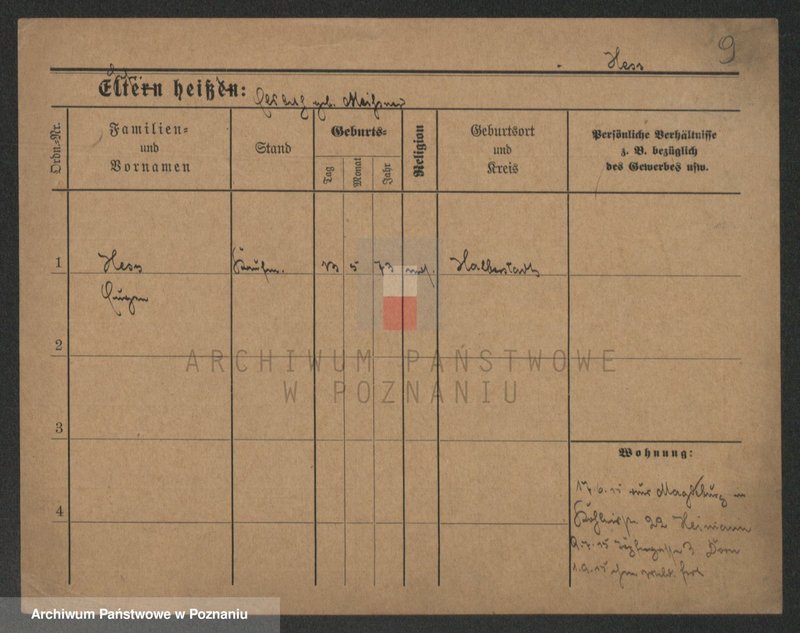 9
Hess
Eltern heißen: geb. Meißner
Ordn.-Nr.
Familien-
und
Vornamen
Stand
Geburts-
Tag
Monat
Jahr
Religion
Geburtsort
und
Kreis
Persönliche Verhältnisse
z. B. bezüglich
des Gewerbes usw.
1
Hess
Kaufm.
13 5 73
Halberstadt
2
ARCHIWUM PAŃSTWOWE
W POZNANIU
3
Wohnung:
17.6.15 aus Magdeburg
4
22 Heimann
3 Dorn
1.9.15
Archiwum Państwowe w Poznaniu